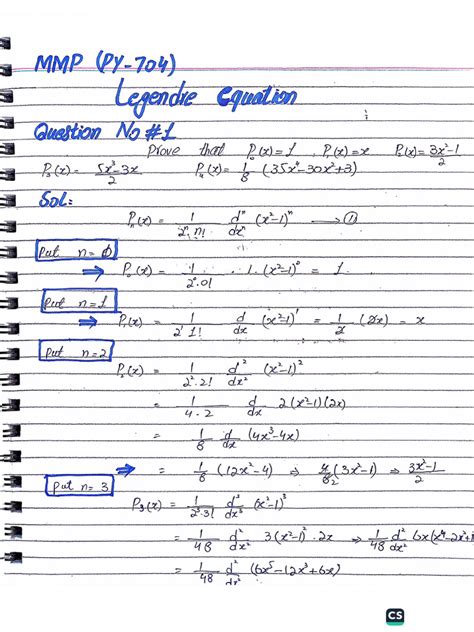 MMP (PY-704)
Legendre Equation
Question No #1
Prove that P₀(x)=1 , P₁(x)=x P₂(x)=3x²-1/2
P₃(x)= 5x³-3x/2 P₄(x)=1/8 (35x⁴-30x²+3)
Sol:
Pₙ(x) = 1/2ⁿ.n! dⁿ/dxⁿ (x²-1)ⁿ → ①
Put n=0
⇒ P₀(x) = 1/2⁰.0! . 1. (x²-1)⁰ = 1.
Put n=1
⇒ P₁(x) = 1/2¹ 1! d/dx (x²-1)¹ = 1/2 (2x) = x
Put n=2
P₂(x) = 1/2².2! d²/dx² (x²-1)²
= 1/4.2 d/dx 2(x²-1)(2x)
= 1/8 d/dx (4x³-4x)
⇒ = 1/8 (12x²-4) ⇒ 4/8 2 (3x²-1) ⇒ 3x²-1/2
Put n=3
P₃(x) = 1/2³.3! d³/dx³ (x²-1)³
= 1/48 d²/dx² 3(x²-1)².2x ⇒ 1/48 d²/dx² 6x(x⁴-2x²+1
= 1/48 d²/dx² (6x⁵-12x³+6x)
CS